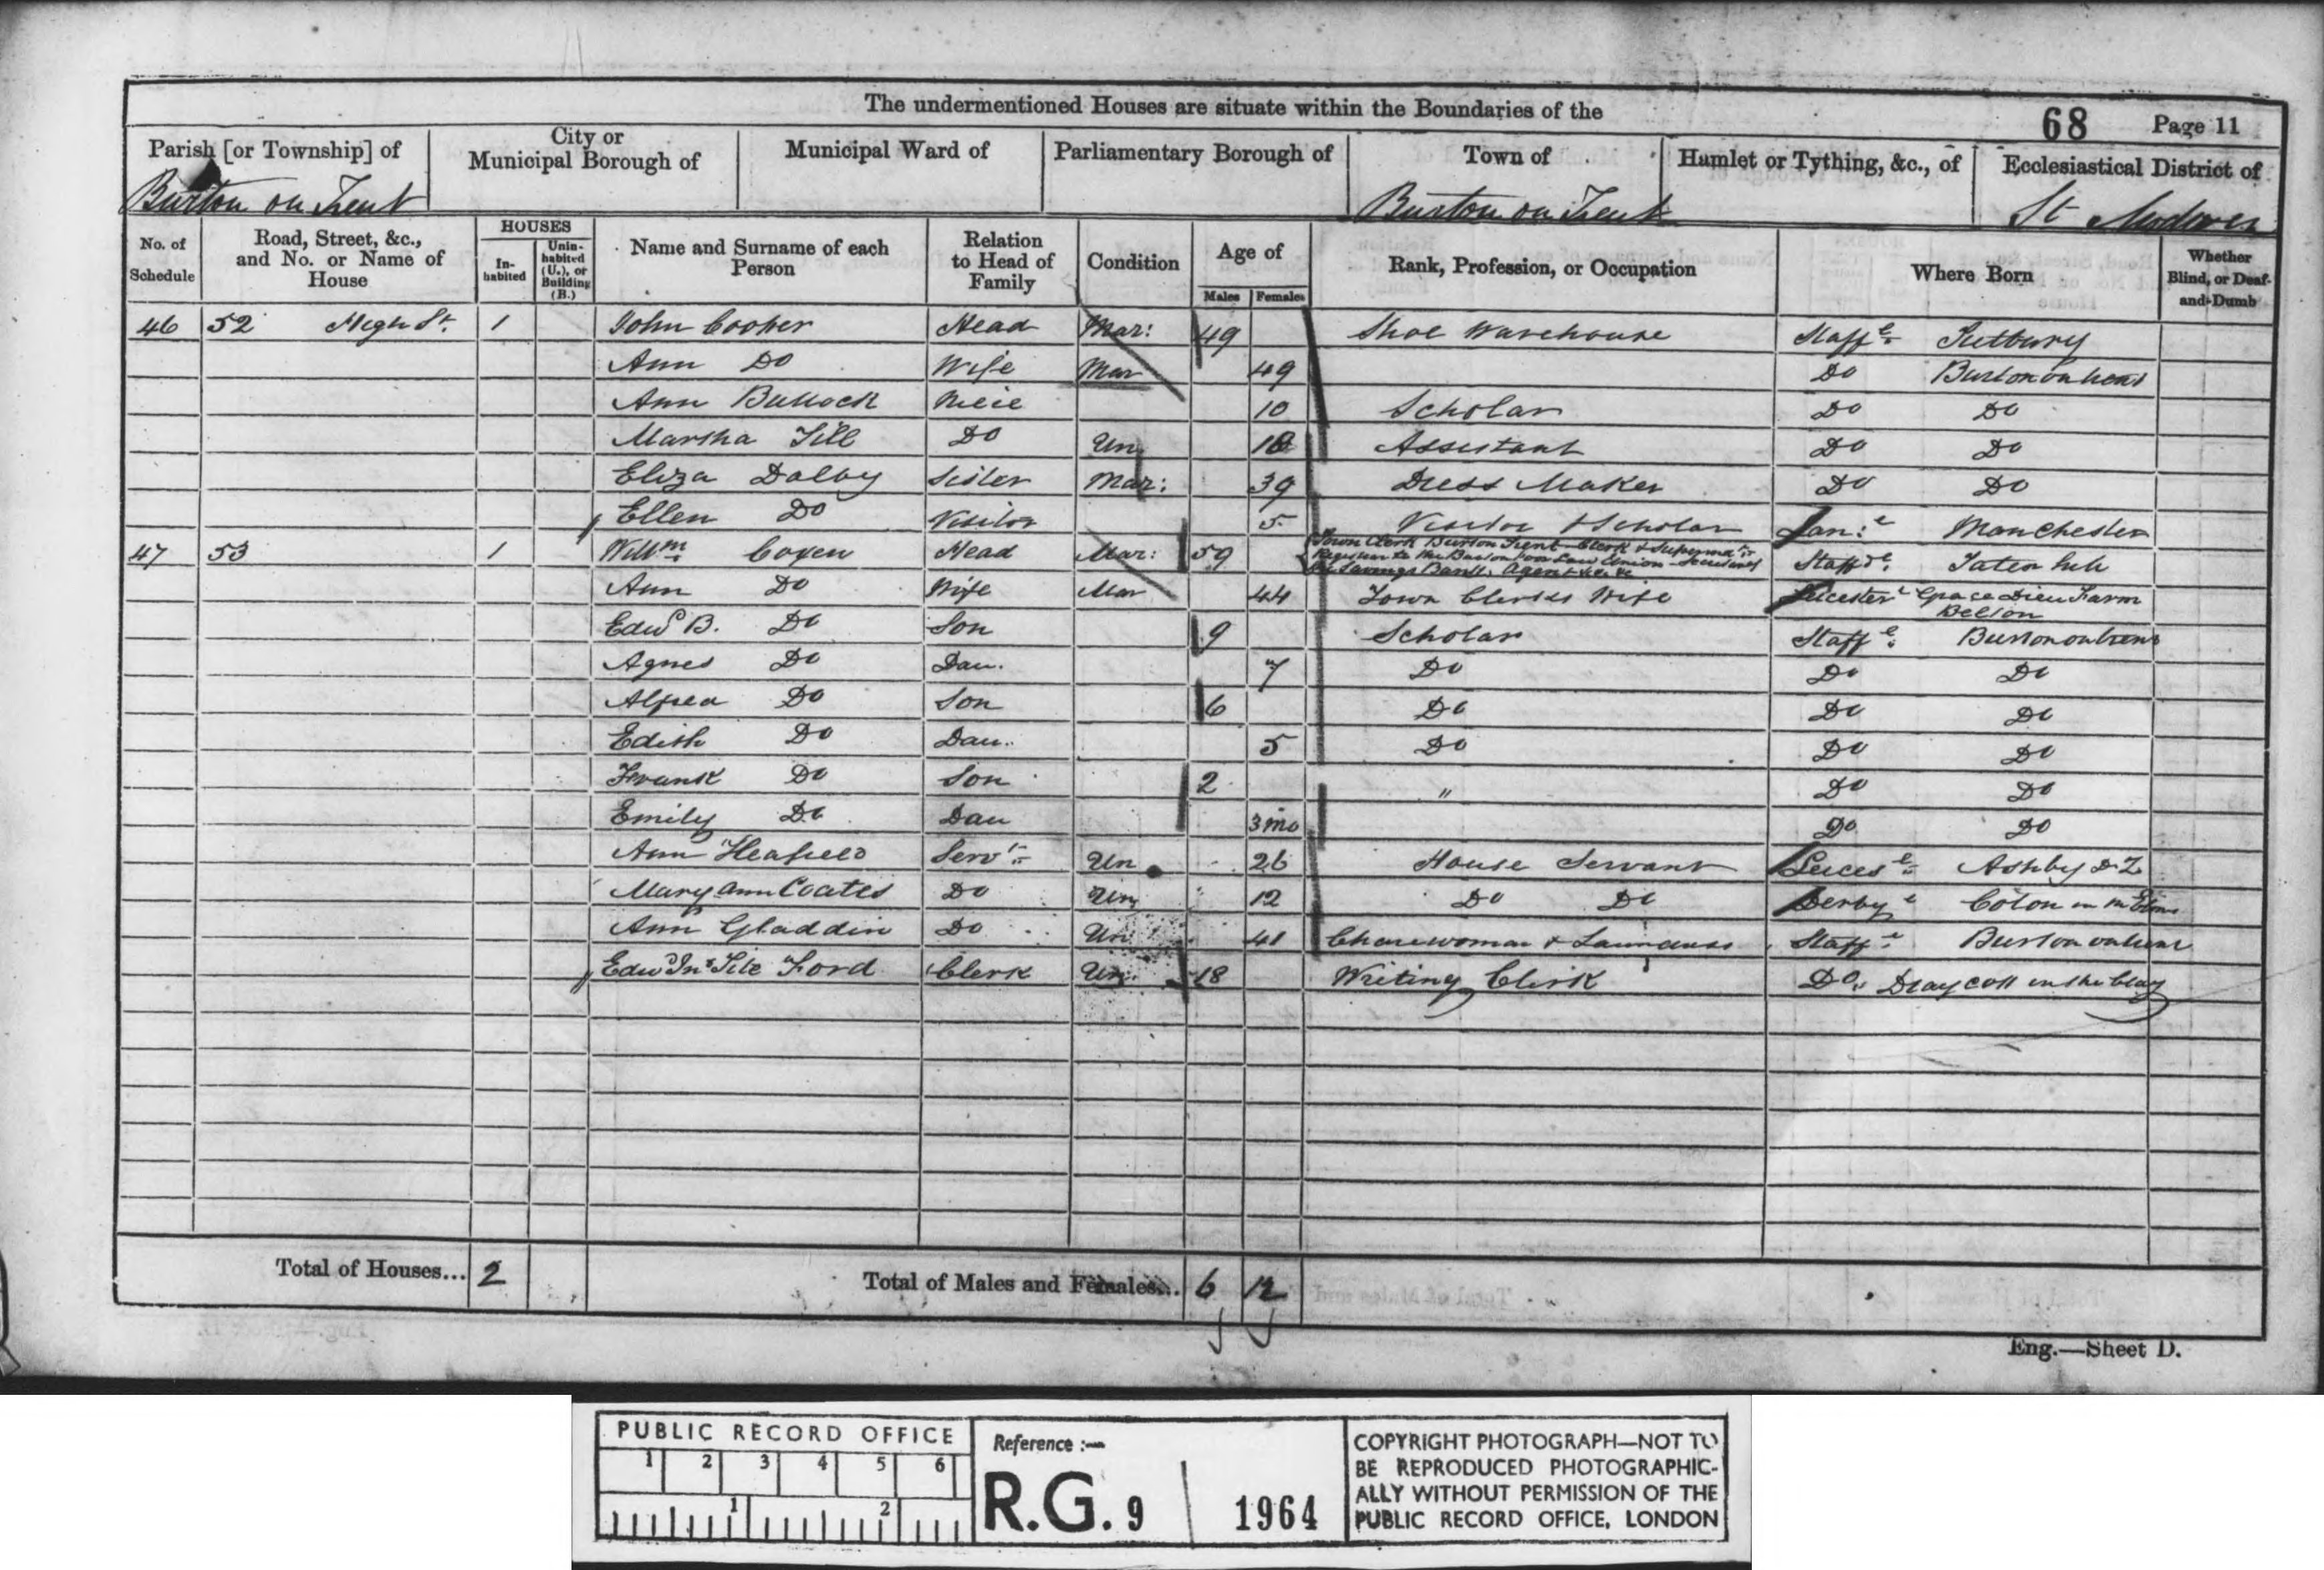 The undermentioned Houses are situate within the Boundaries of the
68 Page 11
Parish [or Township] of
City or Municipal Borough of
Municipal Ward of
Parliamentary Borough of
Town of
Hamlet or Tything, &c., of
Ecclesiastical District of
Burton on Trent
Burton on Trent
St Modwen
No. of Schedule
Road, Street, &c., and No. or Name of House
HOUSES
In-habited
Unin-habited (U.), or Building (B.)
Name and Surname of each Person
Relation to Head of Family
Condition
Age of
Males
Females
Rank, Profession, or Occupation
Where Born
Whether Blind, or Deaf-and-Dumb
46 52 High St. 1 John Cooper Head Mar: 49 Shoe Warehouse Staffe Tutbury
Ann Do Wife Mar 49 Do Burton on Trent
Ann Bullock Niece 10 Scholar Do Do
Marsha Till Do Un Assistant Do Do
Eliza Dalby Sister Mar: 39 Dress Maker Do Do
Ellen Do Visitor 5 Visitor & Scholar Lan:e Manchester
47 53 1 Willm Coxen Head Mar: 59 Town Clerk Burton Trent Clerk & Superindtr
Registrar to the Burton Poor Law Union Secretary
Savings Bank, Agent &c. &c Staffde Tatenhill
Ann Do Wife Mar 44 Town Clerks Wife Leicestere Grace Dieu Farm
Belton
Edwd B. Do Son 9 Scholar Staffe Burton on Trent
Agnes Do Dau. 7 Do Do Do
Alfred Do Son 6 Do Do Do
Edith Do Dau. 5 Do Do Do
Frank Do Son 2 " Do Do
Emily Do Dau 3 mo Do Do
Ann Heafield Servt Un 26 House Servant Leicese Ashby D Z
Mary Ann Coates Do Un 12 Do Do Derbye Coton in the Elms
Ann Gladdin Do Un 41 Charewoman & Laundress Staffe Burton on Trent
Edwd Jno Ford Clerk Un. 18 Writing Clerk Do. Draycott in the Clay
Total of Houses... 2
Total of Males and Females... 6 12
Eng.—Sheet D.
PUBLIC RECORD OFFICE
1 2 3 4 5 6
1 2
Reference :—
R.G. 9 1964
COPYRIGHT PHOTOGRAPH—NOT TO
BE REPRODUCED PHOTOGRAPHIC-
ALLY WITHOUT PERMISSION OF THE
PUBLIC RECORD OFFICE, LONDON